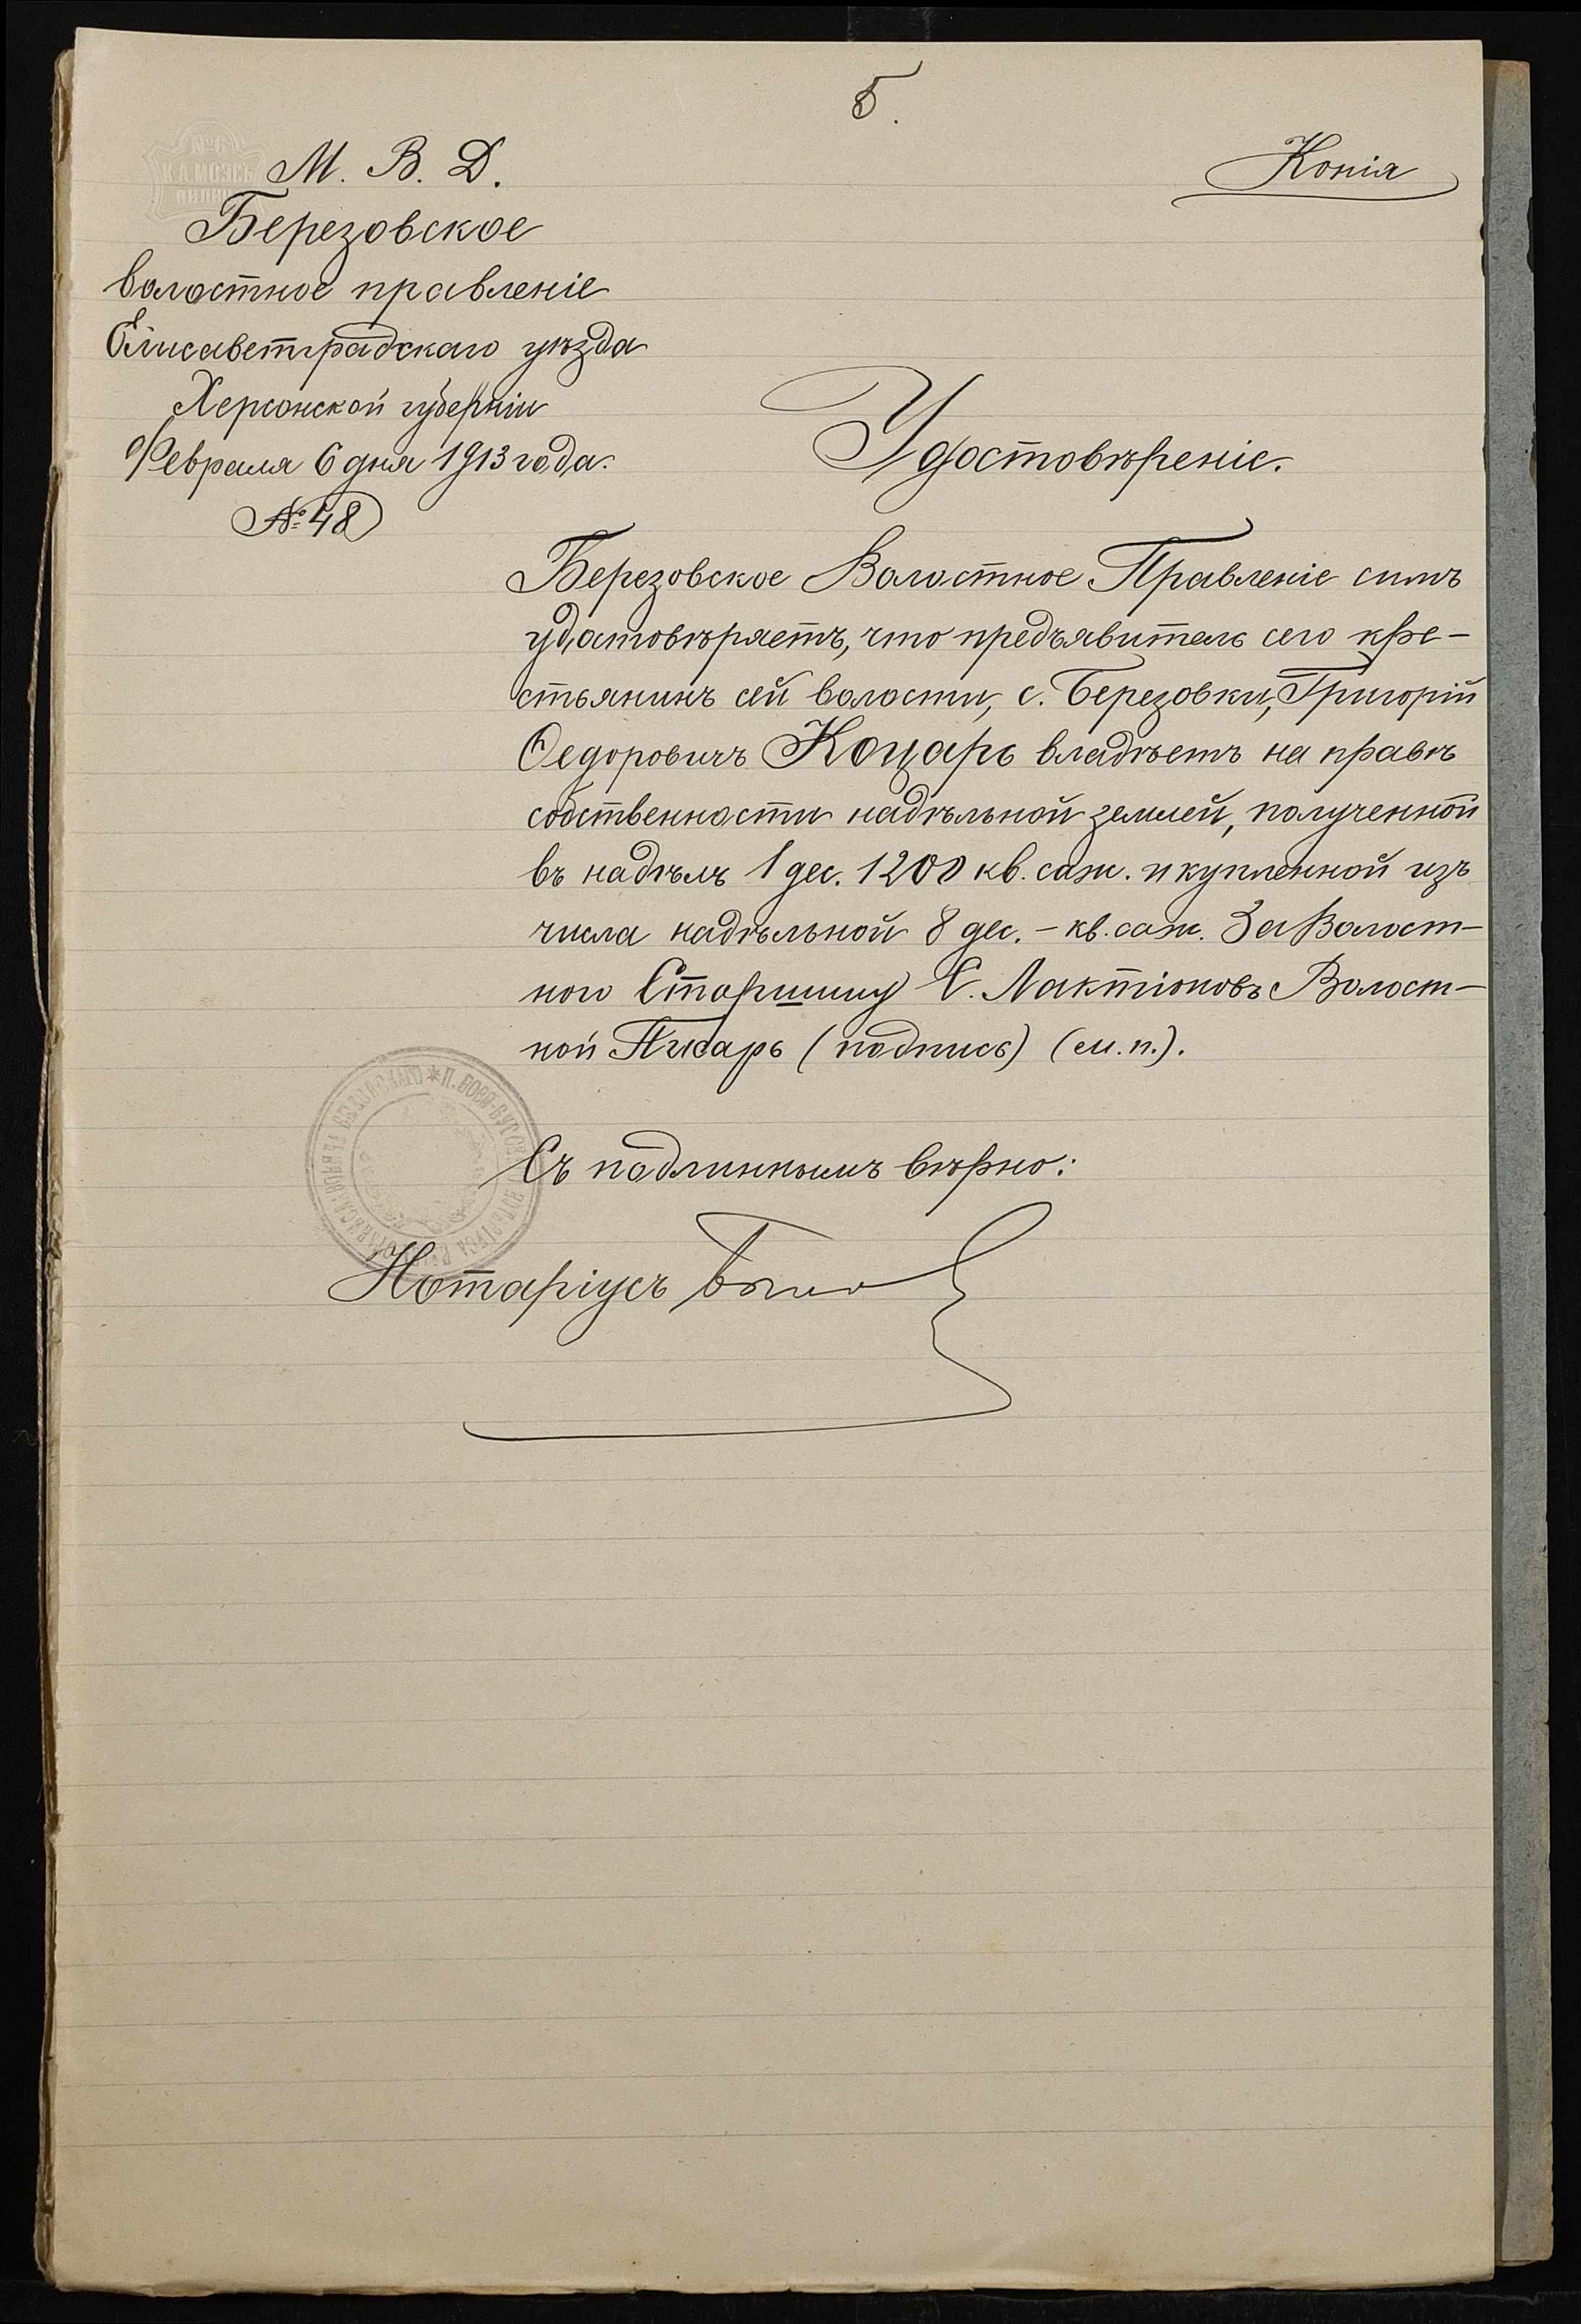 Б.
Копія
М. В. Д.
Березовское
волостное правленіе
Елисаветградскаго уѣзда
Херсонской губерніи
Февраля 6 дня 1913 года.
№ 48
Удостовѣреніе.
Березовское Волостное Правленіе симъ
удостовѣряетъ, что предъявитель сего кре-
стьянинъ сей волости, с. Березовки, Григорій
Ѳедоровичъ Коцарь владѣетъ на правѣ
собственности надѣльной землей, полученной
въ надѣлъ 1 дес. 1200 кв. саж. и купленной изъ
числа надѣльной 8 дес. - кв. саж. За Волост-
ного Старшину С. Лактіоновъ Волост-
ной Писарь (подпись) (м.п.).
Съ подлиннымъ вѣрно:
Нотаріусъ